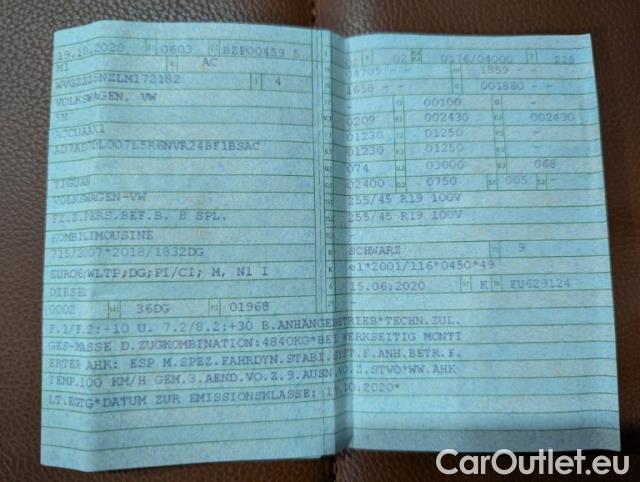 19.10.2020 0603 BZP00459 5
M1 AC
WVGZZZ5NZLM172182 4
VOLKSWAGEN, VW
5N
ACCUAAX1
AD7AD7DL007L5R6NVR24BF1BSAC
TIGUAN
VOLKSWAGEN-VW
FZ.Z.PERS.BEF.B. 8 SPL.
KOMBILIMOUSINE
715/2007*2018/1832DG
EURO6;WLTP;DG;PI/CI; M, N1 I
DIESEL
0002 36DG 01968
02 02 0176/04000 228
04705 - - 1859 - -
1658 - - 001880 - -
- 00100 -
0209 002430 002430
01230 01250 -
01230 01250 -
074 03000 068
02400 0750 005 -
255/45 R19 100V
255/45 R19 100V
-
SCHWARZ 9
e1*2001/116*0450*49
15.06.2020 K FU629124
21 -
F.1/F.2:+10 U. 7.2/8.2:+30 B.ANHÄNGEBETRIEB*TECHN.ZUL.
GES-MASSE D.ZUGKOMBINATION:4840KG*BEI WERKSEITIG MONTI
ERTER AHK: ESP M.SPEZ.FAHRDYN.STABI.SYST.F.ANH.BETR.F.
TEMP.100 KM/H GEM.3.AEND.VO.Z.9.AUSN.VO.Z.STVO*WW.AHK
LT.EGTG*DATUM ZUR EMISSIONSKLASSE: 19.10.2020*
CarOutlet.eu